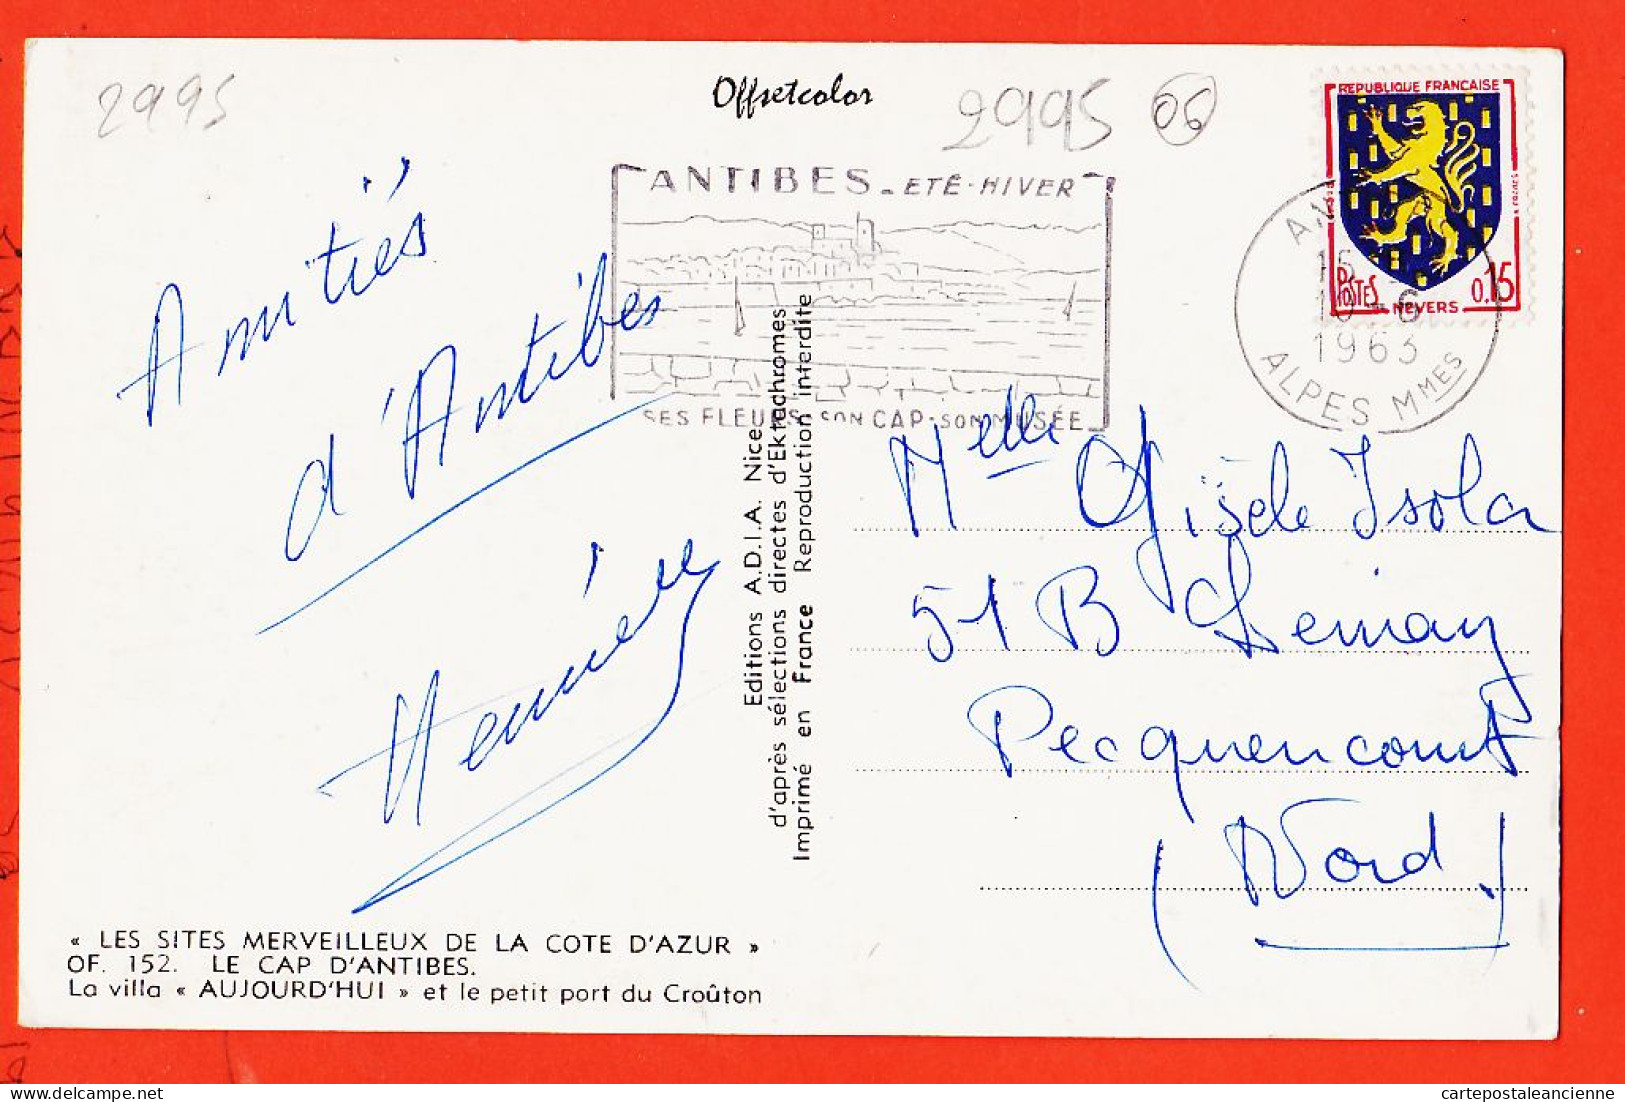 2995
Offsetcolor
2995 06
REPUBLIQUE FRANCAISE
POSTES 0,15
NEVERS
ANTIBES - ETÉ - HIVER
SES FLEURS - SON CAP - SON MUSÉE
1963
ALPES MMES
Amitiés
d'Antibes
Editions A.D.I.A. Nice
d'après sélections directes d'Ektachromes
Imprimé en France Reproduction interdite
Melle Gisèle Isola
51 B
Pecquencourt
(Nord)
« LES SITES MERVEILLEUX DE LA COTE D'AZUR »
OF. 152. LE CAP D'ANTIBES.
La villa « AUJOURD'HUI » et le petit port du Croûton
cartepostaleancienne